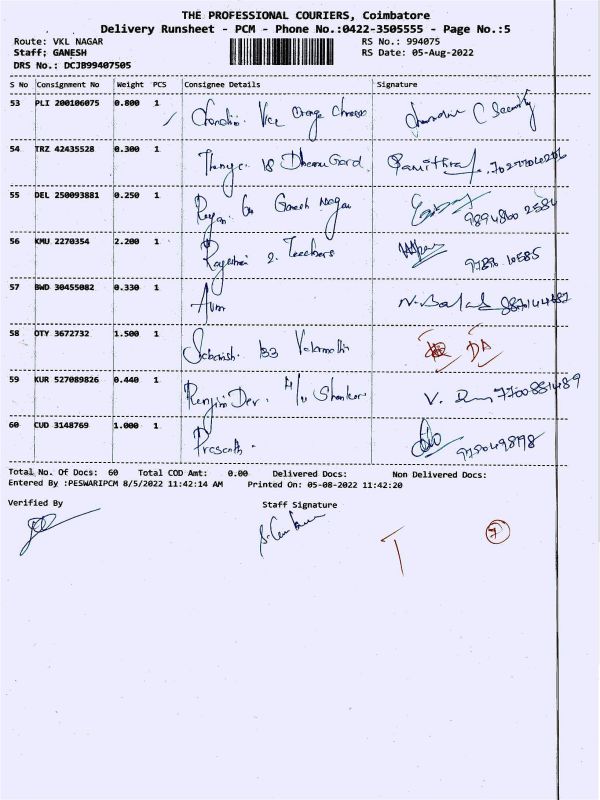 THE PROFESSIONAL COURIERS, Coimbatore
Delivery Runsheet - PCM - Phone No.:0422-3505555 - Page No.:5
Route: VKL NAGAR RS No.: 994075
Staff: GANESH RS Date: 05-Aug-2022
DRS No.: DCJB99407505
S No Consignment No Weight PCS Consignee Details Signature
53 PLI 200106075 0.800 1 Orange
54 TRZ 42435528 0.300 1 18 Pavithra
55 DEL 250093881 0.250 1 Ganesh Nagar
56 KMU 2270354 2.200 1 2. Teachers
57 BWD 30455082 0.330 1
58 OTY 3672732 1.500 1 133 DA
59 KUR 527089826 0.440 1 Renjini Dev. Shankar V. 7700881489
60 CUD 3148769 1.000 1 Prasanth. 9750498198
Total No. Of Docs: 60 Total COD Amt: 0.00 Delivered Docs: Non Delivered Docs:
Entered By :PESWARIPCM 8/5/2022 11:42:14 AM Printed On: 05-08-2022 11:42:20
Verified By Staff Signature
7